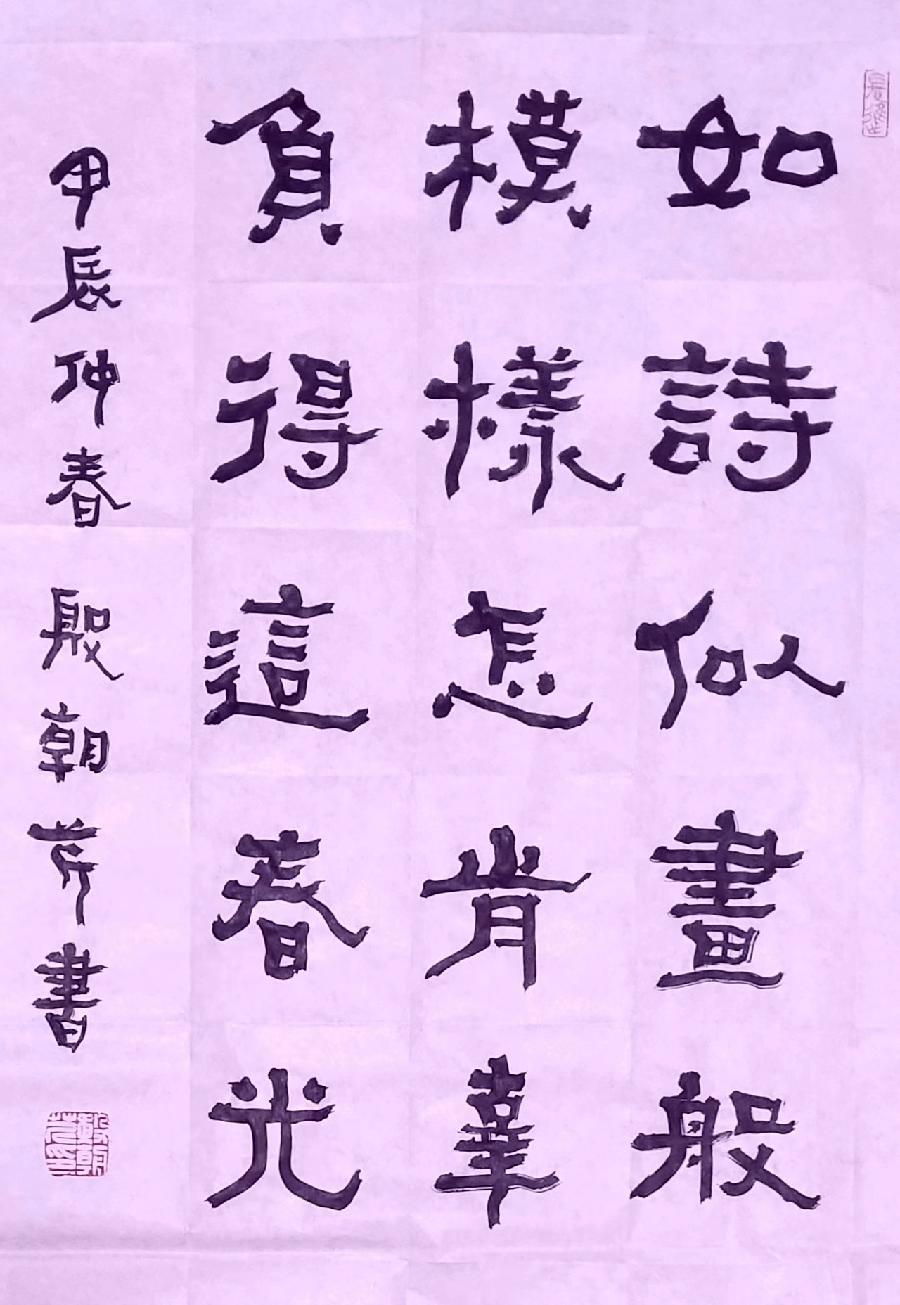 如詩似畫般
模樣怎肯辜
負得這春光
甲辰仲春殷朝芹書